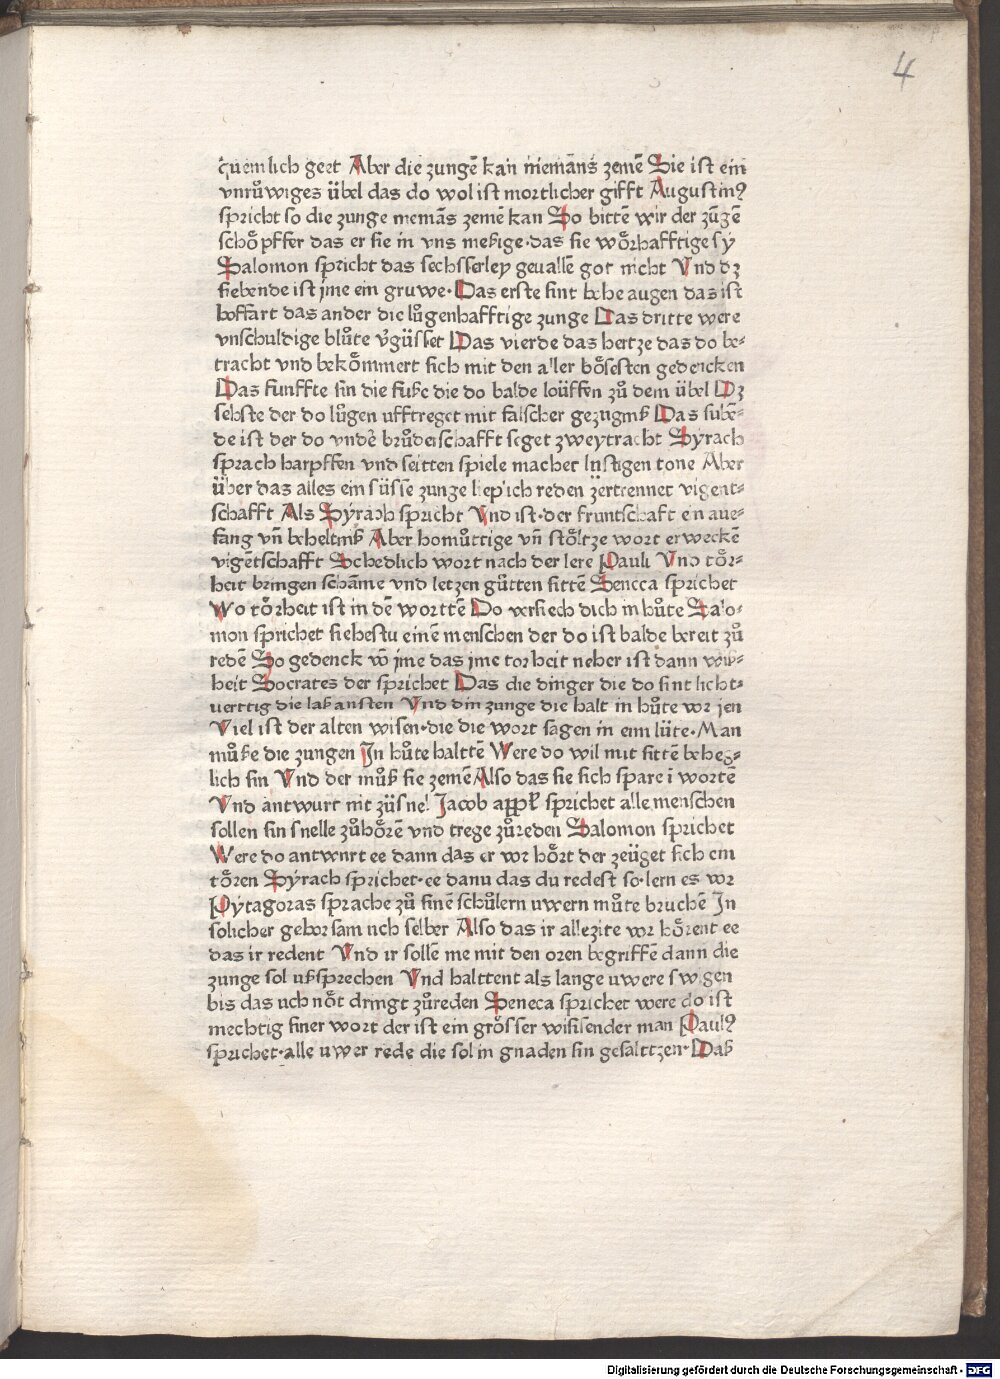 4
quemlich gert Aber die zungē kan niemāns zemē Sie ist ein
vnruͦwiges übel das do wol ist mortlicher gifft Augustinꝰ
spricht so die zunge niemās zemē kan So bittē wir der zūgē
schoͤpffer das er sie in vns meßige·das sie woͤrhafftige sÿ
Salomon spricht das sechsserley geuallē got nicht Vnd dz
siebende ist jme ein gruwe·Das erste sint hohe augen das ist
hoffart das ander die luͤgenhafftige zunge Das dritte were
vnschuldige bluͦte v̄güsset Das vierde das hertze das do be⸗
tracht vnd bekoͤmmert sich mit den aller boͤsesten gedencken
Das funffte sin die fuße die do balde loüffen zuͦ dem übel Dz
sehste der do luͤgen ufftreget mit falscher gezugniß Das subē⸗
de ist der do vndē bruͤderschafft seget zweytracht Sÿrach
sprach harpffen vnd seitten spiele machet lustigen tone Aber
über das alles ein süsse zunge lieplich reden zertrennet vigent⸗
schafft Als Sÿrach spricht Vnd ist·der fruntschaft en ane⸗
fang vn̄ beheltniß Aber homuͤttige vn̄ stoͤltze wort erweckē
vigētschafft Schedlich wort nach der lere Pauli Vnd toͤr⸗
heit bringen schāme vnd letzen guͦtten sittē Seneca sprichet
Wo toͤrheit ist in dē worttē Do versiech dich in huͦte Salo⸗
mon sprichet siehestu einē menschen der do ist balde bereit zuͦ
redē So gedenck vō jme das jme torheit neher ist dann wiß⸗
heit Socrates der sprichet Das die dinger die do sint licht⸗
uerttig die laß ansten Vnd din zunge die halt in huͦte vor jen
Viel ist der alten wisen·die die wort sagen in enn lüte·Man
muͦße die zungen In huͦte halttē Were do wil mit sittē beheg⸗
lich sin Vnd der muͦß sie zemē Also das sie sich spare ī wortē
Vnd antwurt nit züsnel Jacob appłs sprichet alle menschen
sollen sin snelle zuͦhoͤrē vnd trege zuͦreden Salomon sprichet
Were do antwurt ee dann das er vor hoͤrt der zeüget sich ein
toͤren Sÿrach sprichet·ee dann das du redest so·lern es vor
Pÿtagoras sprache zuͦ sinē schuͦlern uwern muͦte bruchē In
solicher gehorsam uch selber Also das ir allezite vor hoͤrent ee
das ir redent Vnd ir sollē me mit den oren begriffē dann die
zunge sol ußsprechen Vnd halttent als lange uwere swigen
bis das uch noͤt dringt zuͦreden Seneca sprichet were do ist
mechtig siner wort der ist ein groͤsser wißsender man Paulꝰ
sprichet·alle uwer rede die sol in gnaden sin gesalttzen·Daß
Digitalisierung gefördert durch die Deutsche Forschungsgemeinschaft - DFG